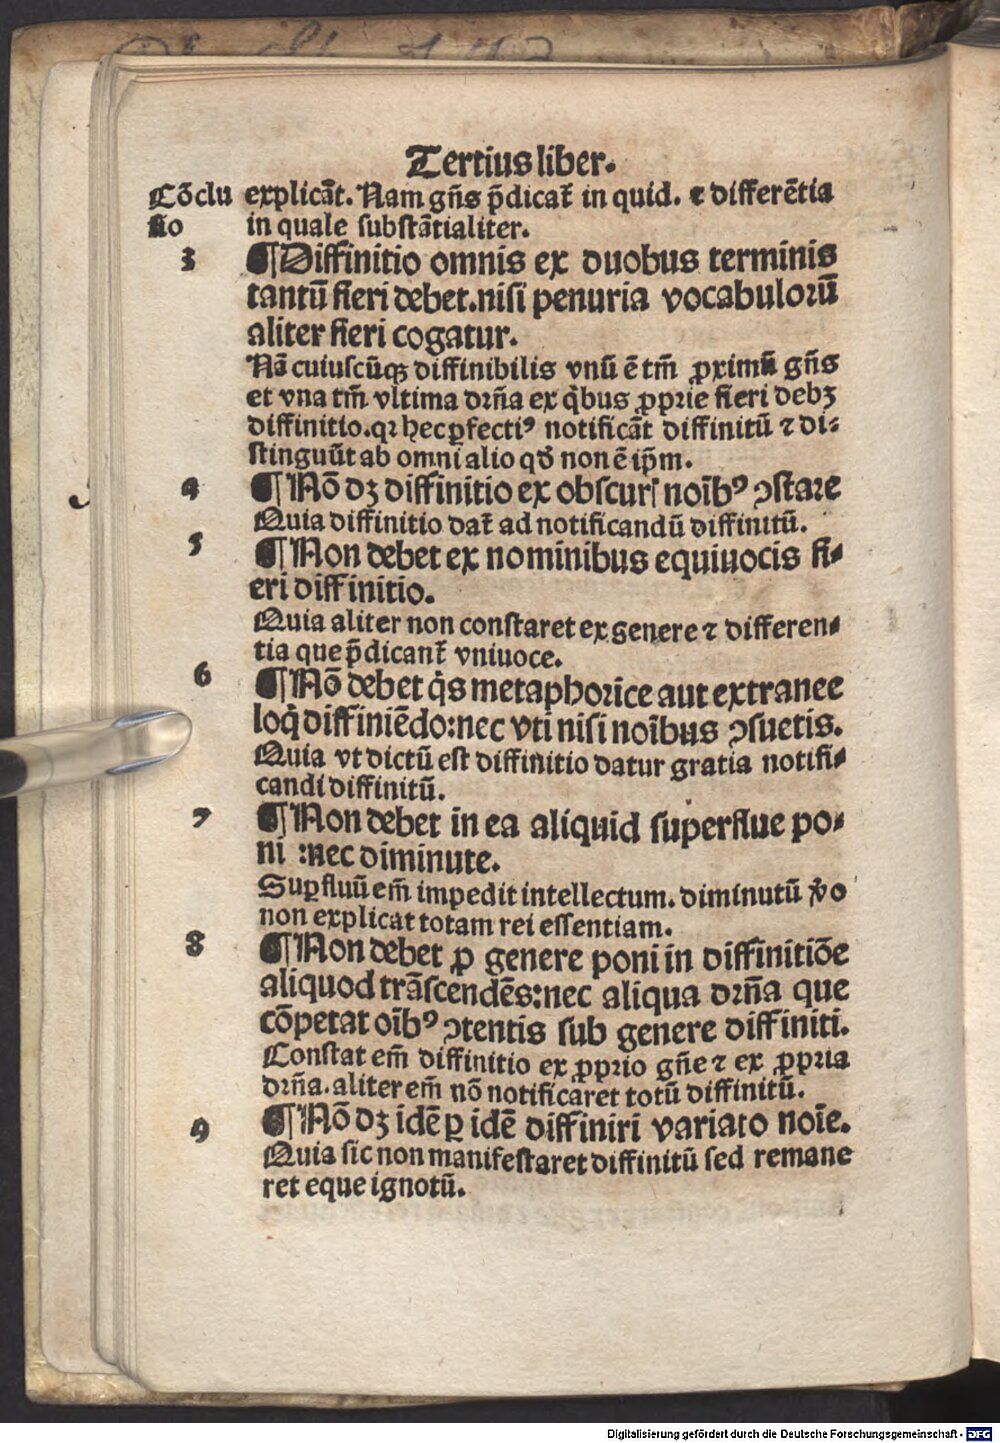 Tertius liber.
Cōclu explicāt. Nam gñs p̄dicat᷑ in quid. ⁊ differētia
sio in quale substātialiter.
3 ¶Diffinitio omnis ex duobus terminis
tantū fieri debet.nisi penuria vocabuloꝛū
aliter fieri cogatur.
Nā cuiuscūqꝫ diffinibilis vnū ē tm̄ ꝓximū gñs
et vna tm̄ vltima dꝛña ex q̇bus ꝓpꝛie fieri debꝫ
diffinitio.qꝛ hec ꝑfectiꝰ notificāt diffinitū ⁊ di⸗
stinguūt ab omni alio qd̄ non ē ip̄m.
4 ¶Nō dꝫ diffinitio ex obscurꝭ noībꝰ ↄstare
Quia diffinitio dat᷑ ad notificandū diffinitū.
5 ¶Non debet ex nominibus equiuocis fi⸗
eri diffinitio.
Quia aliter non constaret ex genere ⁊ differen⸗
tia que p̄dicant᷑ vniuoce.
6 ¶Nō debet q̇s metaphorice aut extranee
loq̇ diffiniēdo:nec vti nisi noībus ↄsuetis.
Quia vt dictū est diffinitio datur gratia notifi⸗
candi diffinitū.
7 ¶Non debet in ea aliquid superflue po⸗
ni :nec diminute.
Suꝑfluū em̄ impedit intellectum. diminutū v̄o
non explicat totam rei essentiam.
8 ¶Non debet ꝓ genere poni in diffinitiōe
aliquod trāscendēs:nec aliqua dꝛña que
cōpetat oībꝰ ↄtentis sub genere diffiniti.
Constat em̄ diffinitio ex ꝓpꝛio gñe ⁊ ex ꝓpꝛia
dꝛña.aliter em̄ nō notificaret totū diffinitū.
9 ¶Nō dꝫ idē ꝑ idē diffiniri variato noīe.
Quia sic non manifestaret diffinitū sed remane
ret eque ignotū.
Digitalisierung gefördert durch die Deutsche Forschungsgemeinschaft - DFG